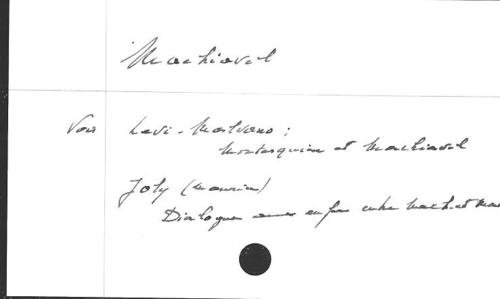 Machiavel
Voir Levi-Malvano :
Montesquieu et Machiavel
Joly (Maurice)
Dialogue aux enfers entre Mach. et Mon